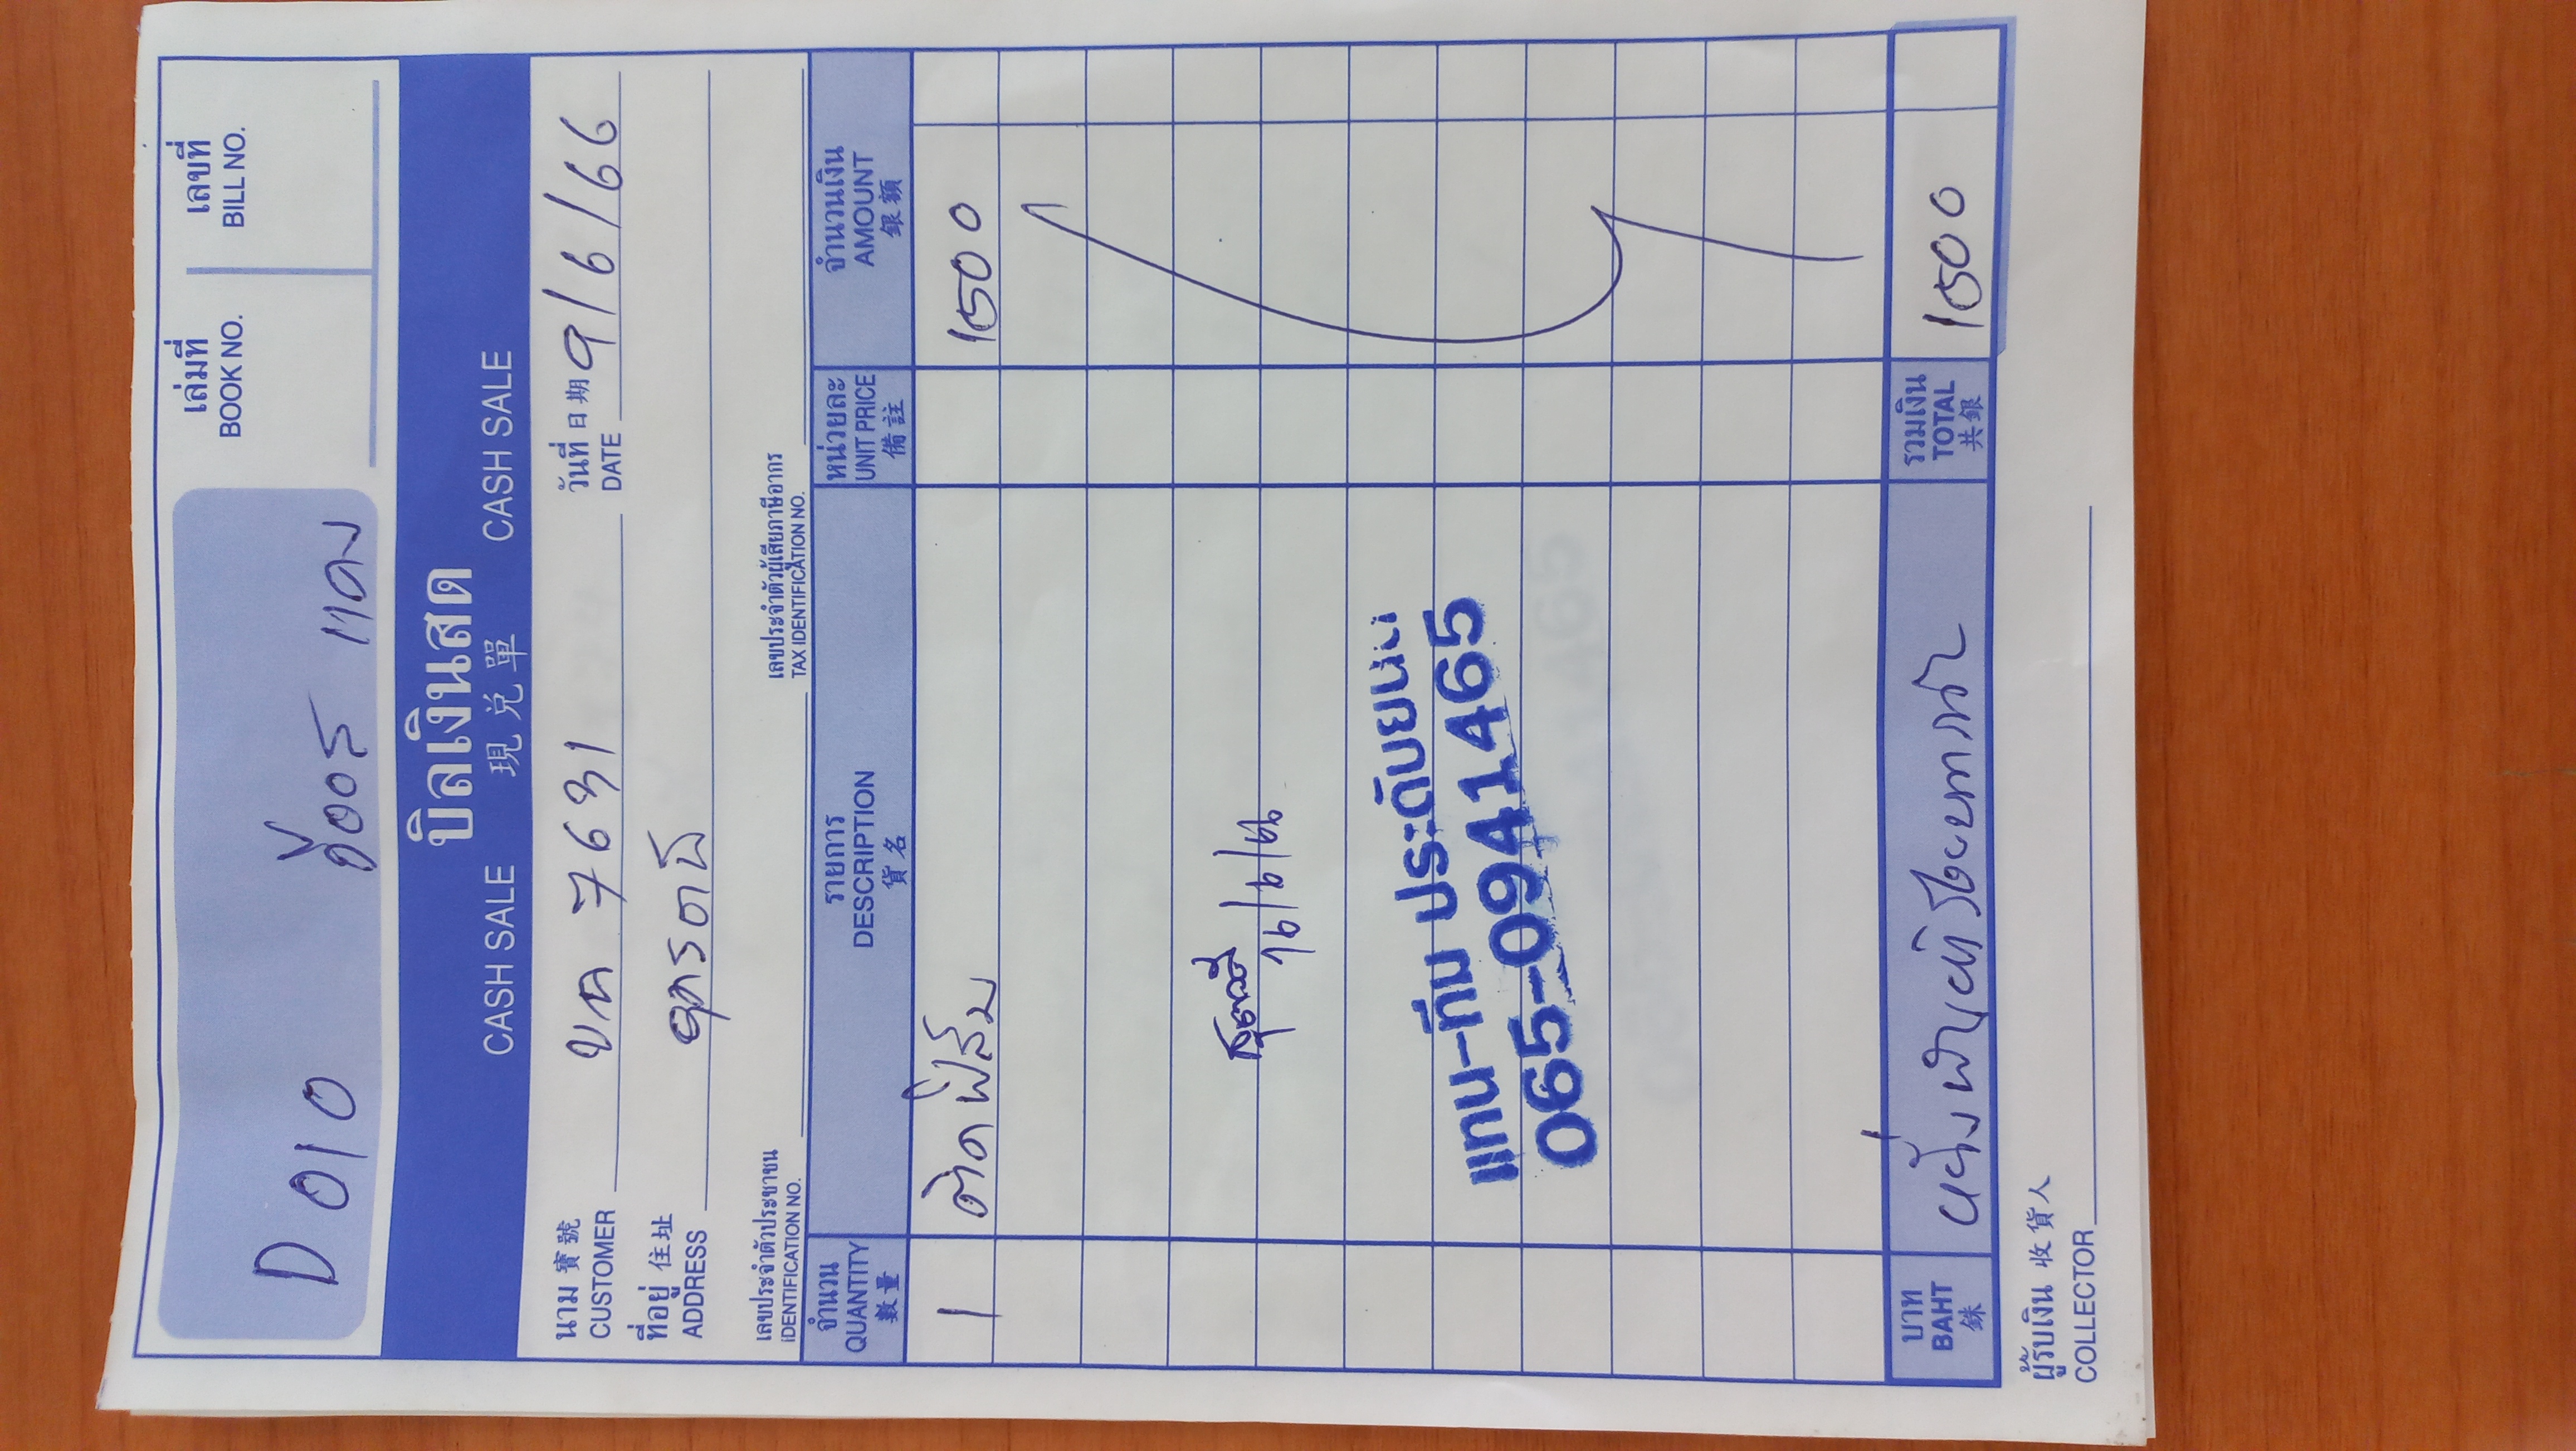 เล่มที่ เลขที่
BOOK NO. BILL NO.
D 010
บิลเงินสด
CASH SALE 現兌單 CASH SALE
นาม 寶號 บค 7631 วันที่ 日期 9/6/66
CUSTOMER DATE
ที่อยู่ 住址 อุดรธานี
ADDRESS
เลขประจำตัวประชาชน เลขประจำตัวผู้เสียภาษีอากร
IDENTIFICATION NO. TAX IDENTIFICATION NO.
จำนวน รายการ หน่วยละ จำนวนเงิน
QUANTITY DESCRIPTION UNIT PRICE AMOUNT
數量 貨名 備註 銀額
1 ติดฟิล์ม 1500
แทน-ทีม ประดับยนต์
065-0941465
บาท หนึ่งพันห้าร้อยบาทถ้วน รวมเงิน 1500
BAHT TOTAL
銖 共銀
ผู้รับเงิน 收貨人
COLLECTOR